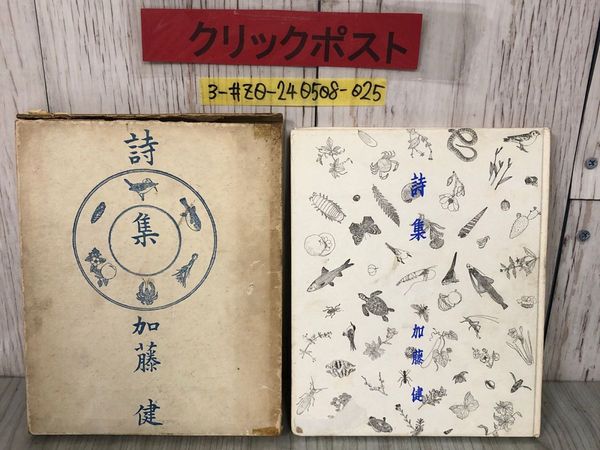 クリックポスト
3-#ZO-240508-025
詩
集
加藤健
詩集
加藤健